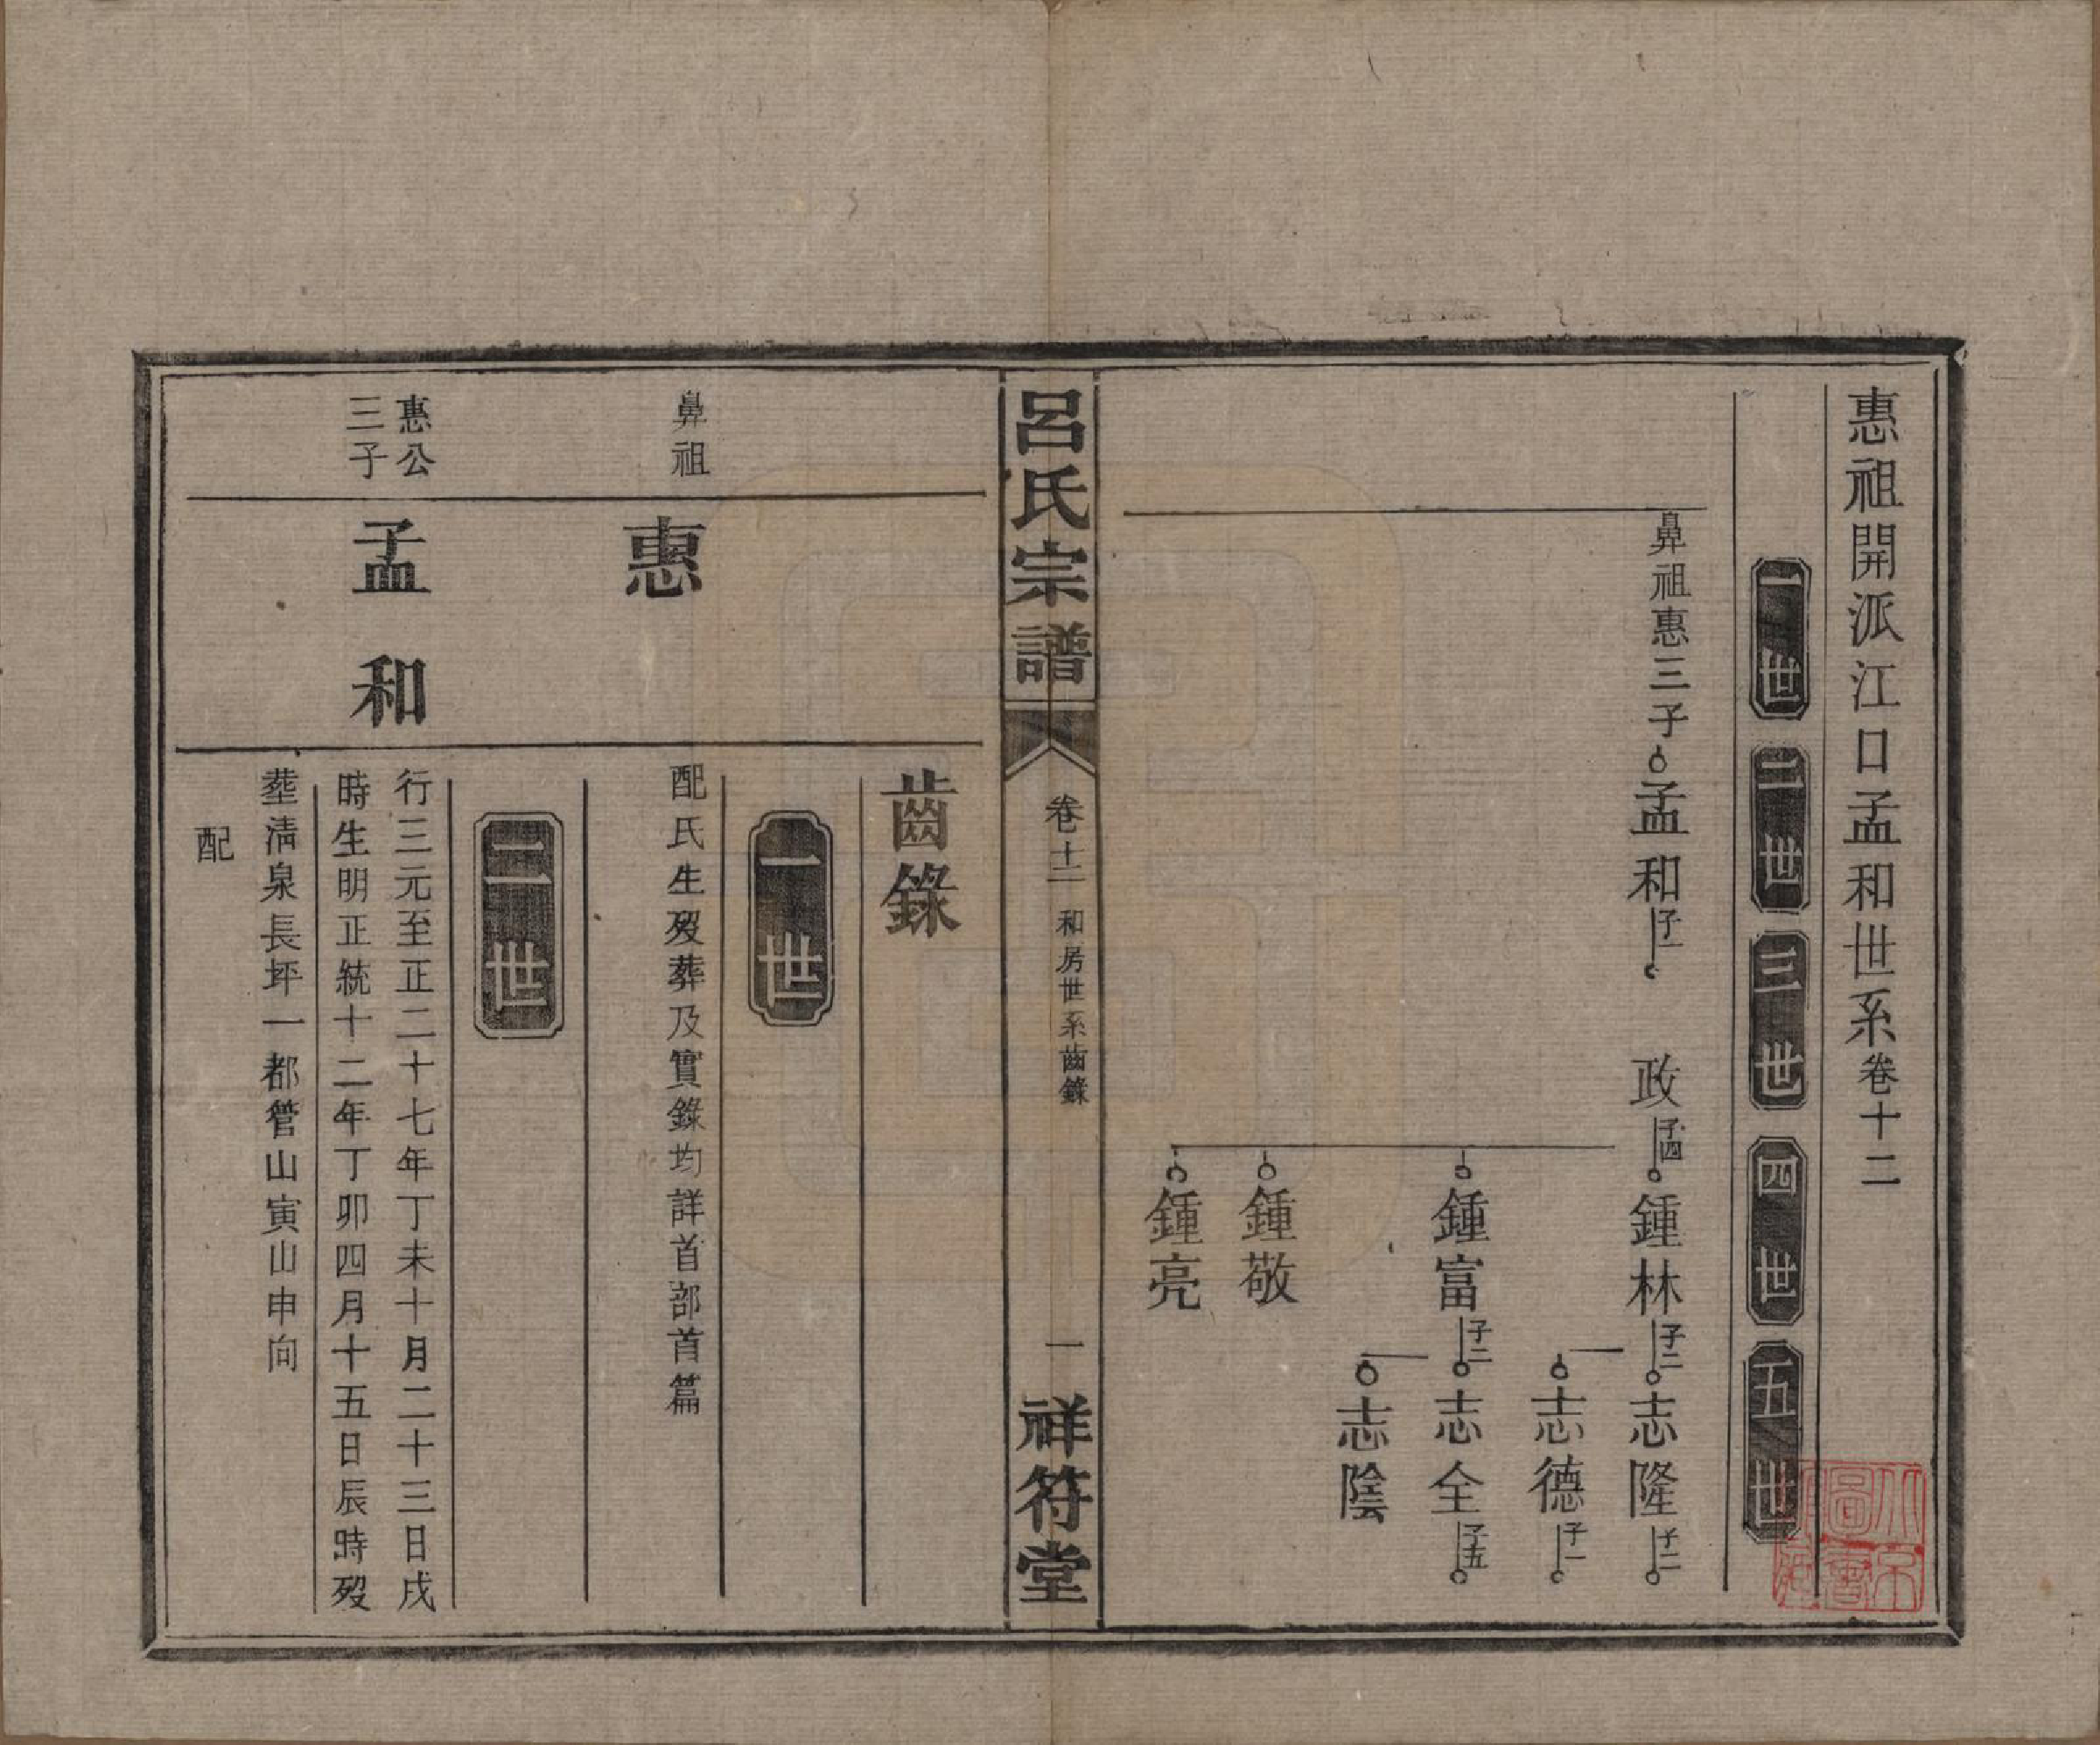 惠祖開派江口孟和世系卷十二
一世
二世
三世
四世
五世
鼻祖惠三子
孟和
子一
政
子四
鍾林
子二
志隆
子二
志德
子一
鍾富
子二
志全
子五
志陰
鍾敬
鍾亮
呂氏宗譜
卷十二
和房世系齒錄
一
祥符堂
齒錄
一世
鼻祖
惠
配氏生歿葬及實錄均詳首部首篇
二世
惠公
三子
孟和
行三元至正二十七年丁未十月二十三日戌
時生明正統十二年丁卯四月十五日辰時歿
塟清泉長坪一都管山寅山申向
配